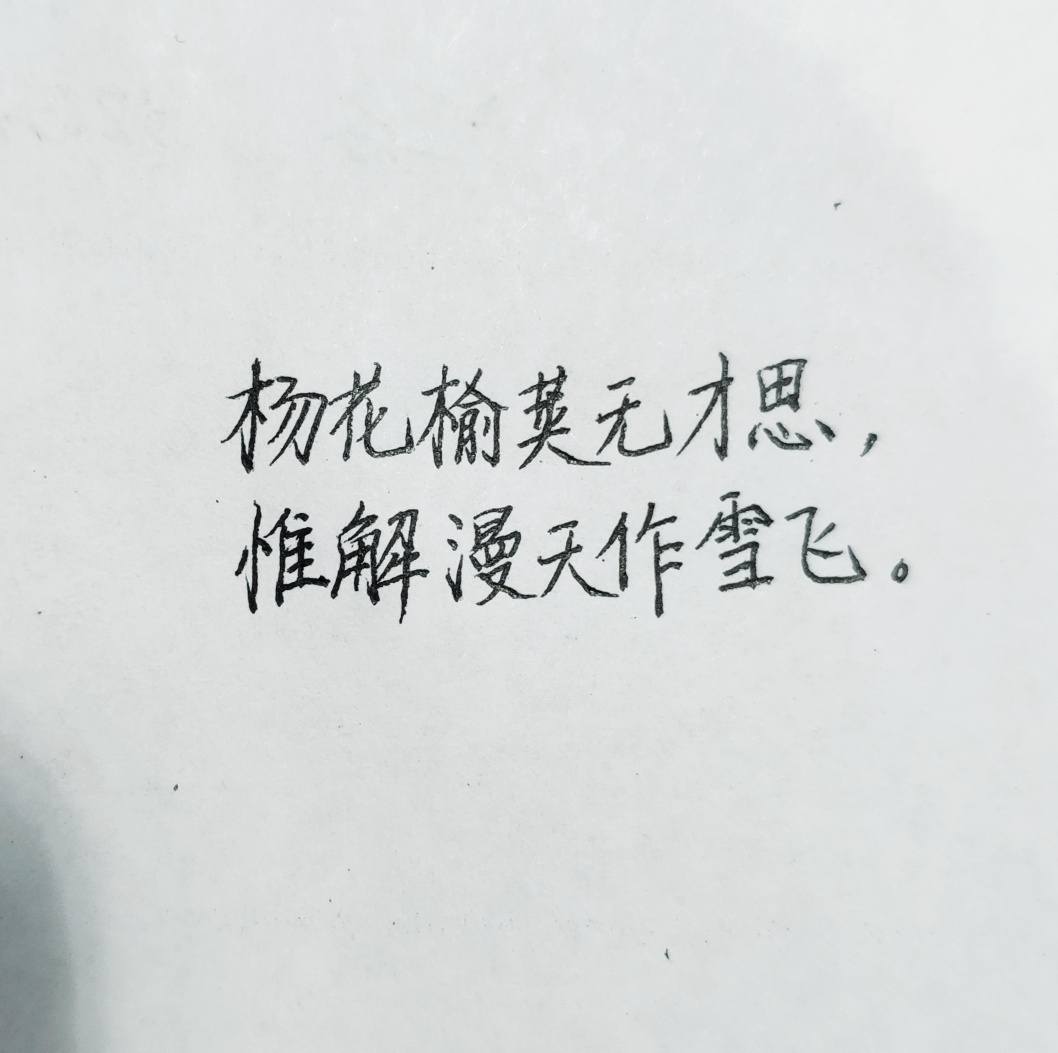 杨花榆荚无才思，
惟解漫天作雪飞。